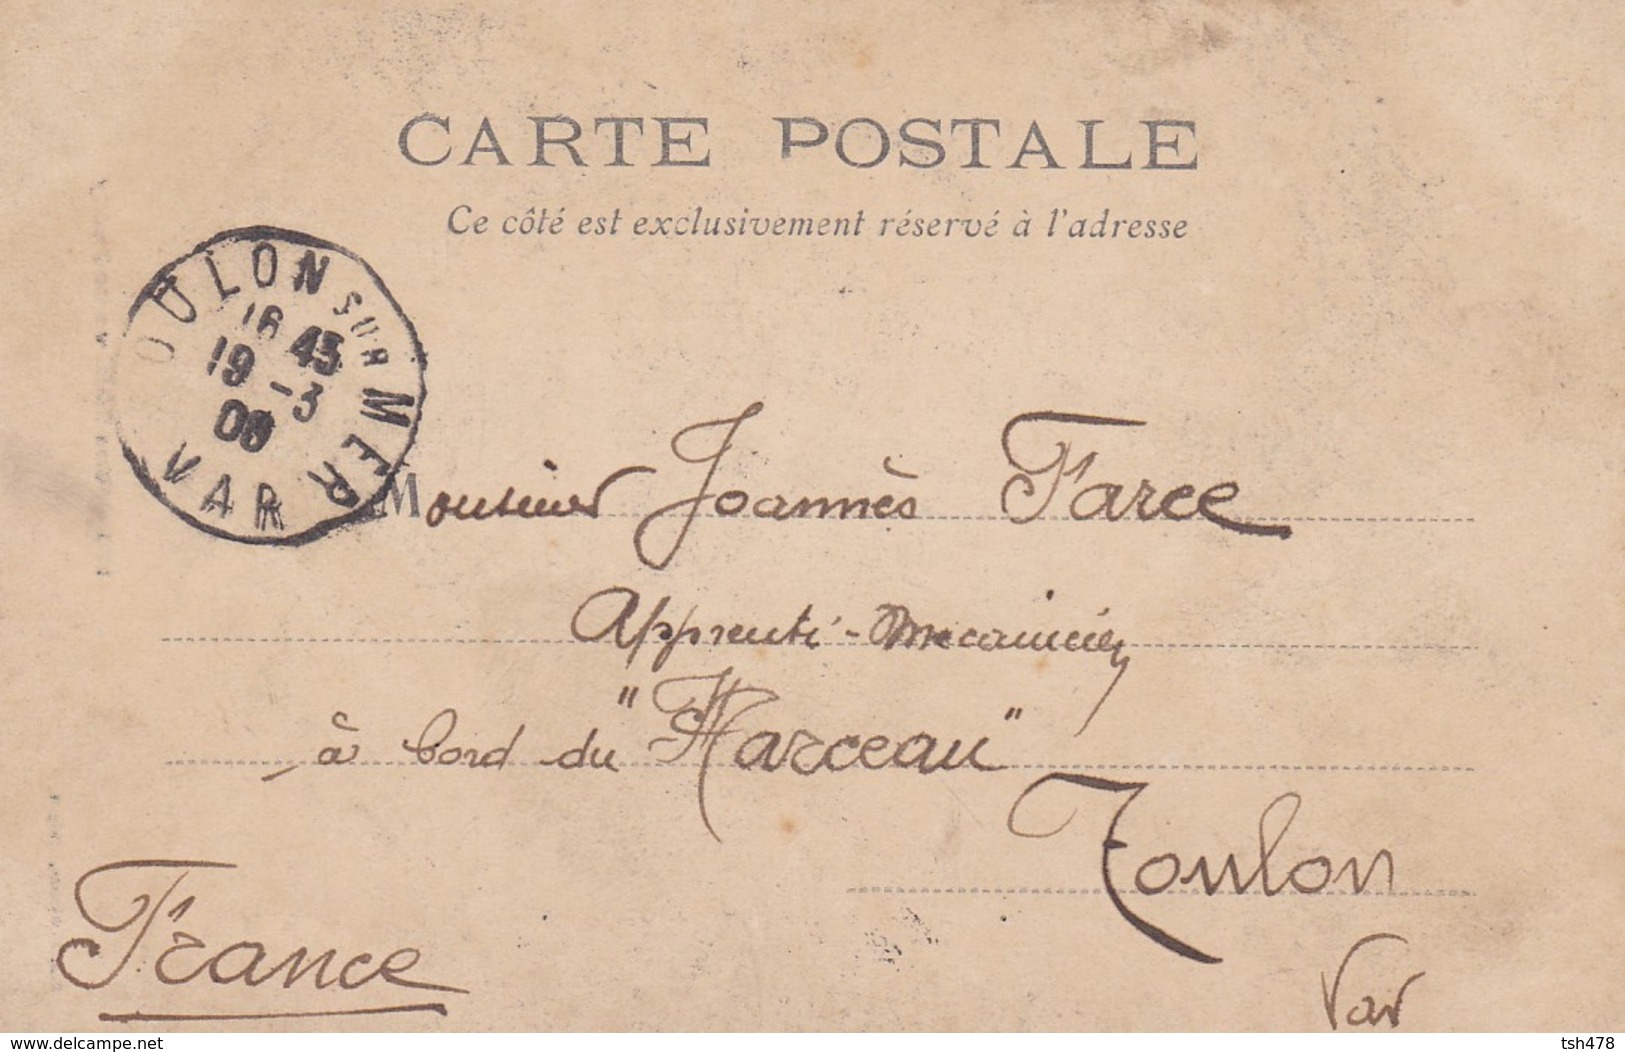 CARTE POSTALE
Ce côté est exclusivement réservé à l'adresse
OULON SUR MER
16 45
19 -3
VAR
Monsieur Joannès Farce
Apprenti-Mecanicien
à bord du "Marceau"
Toulon
Var
France
www.delcampe.net
tsh478